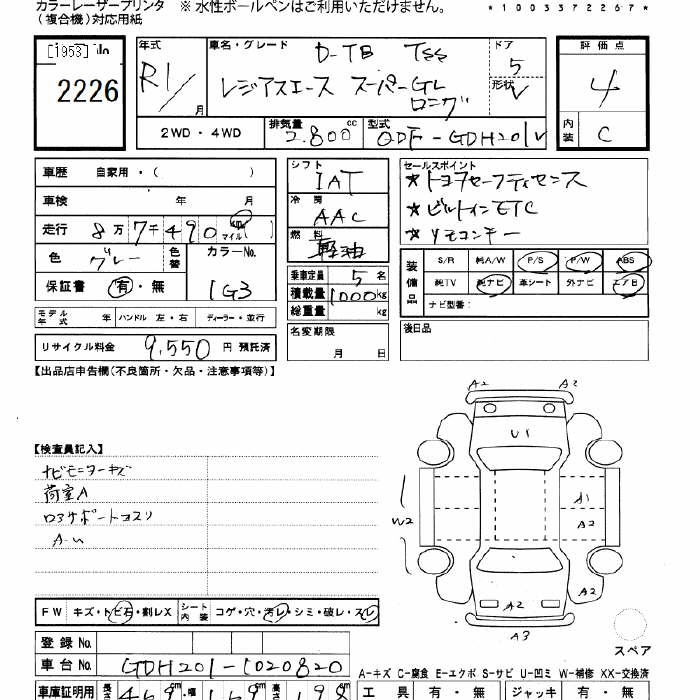 カラーレーザープリンタ ※ 水性ボールペンはご利用いただけません。
(複合機)対応用紙
*1003372267*
[1953] No
2226
年式 R1/ 月
車名・グレード D-TB TSS
レジアスエース スーパーGL
ロング
ドア 5
形状 V
評価点 4
内装 C
2WD・4WD
排気量 2.800 cc
型式 QDF-GDH201V
車歴 自家用・( )
車検 年 月
走行 8万7千490 km マイル ( )
色 グレー 色替 カラーNo. 1G3
保証書 有・無
モデル年式 年 ハンドル 左・右 ディーラー・並行
リサイクル料金 9,550 円 預託済
シフト IAT
冷房 AAC
燃料 軽油
乗車定員 5 名
積載量 1000 kg
総重量 kg
名変期限
月 日
セールスポイント
★トヨタセーフティセンス
★ビルトインETC
★リモコンキー
装備品 S/R 純A/W P/S P/W ABS
純TV 純ナビ 革シート 外ナビ エアB
ナビ型番:
後日品
【出品店申告欄(不良箇所・欠品・注意事項等)】
【検査員記入】
ナビモニターキズ
荷室A
ロアサポートコスリ
A-U
A2 A2
U1
W2
A1
A2
A2 A2
A3
スペア
FW キズ・トビ石・割レX シート内装 コゲ・穴・汚レ・シミ・破レ・スレ
登録 No.
車台 No. GDH201-1020820
A-キズ C-腐食 E-エクボ S-サビ U-凹ミ W-補修 XX-交換済
車庫証明用 長さ 469 cm 幅 169 cm 高さ 198 cm
工具 有・無 ジャッキ 有・無